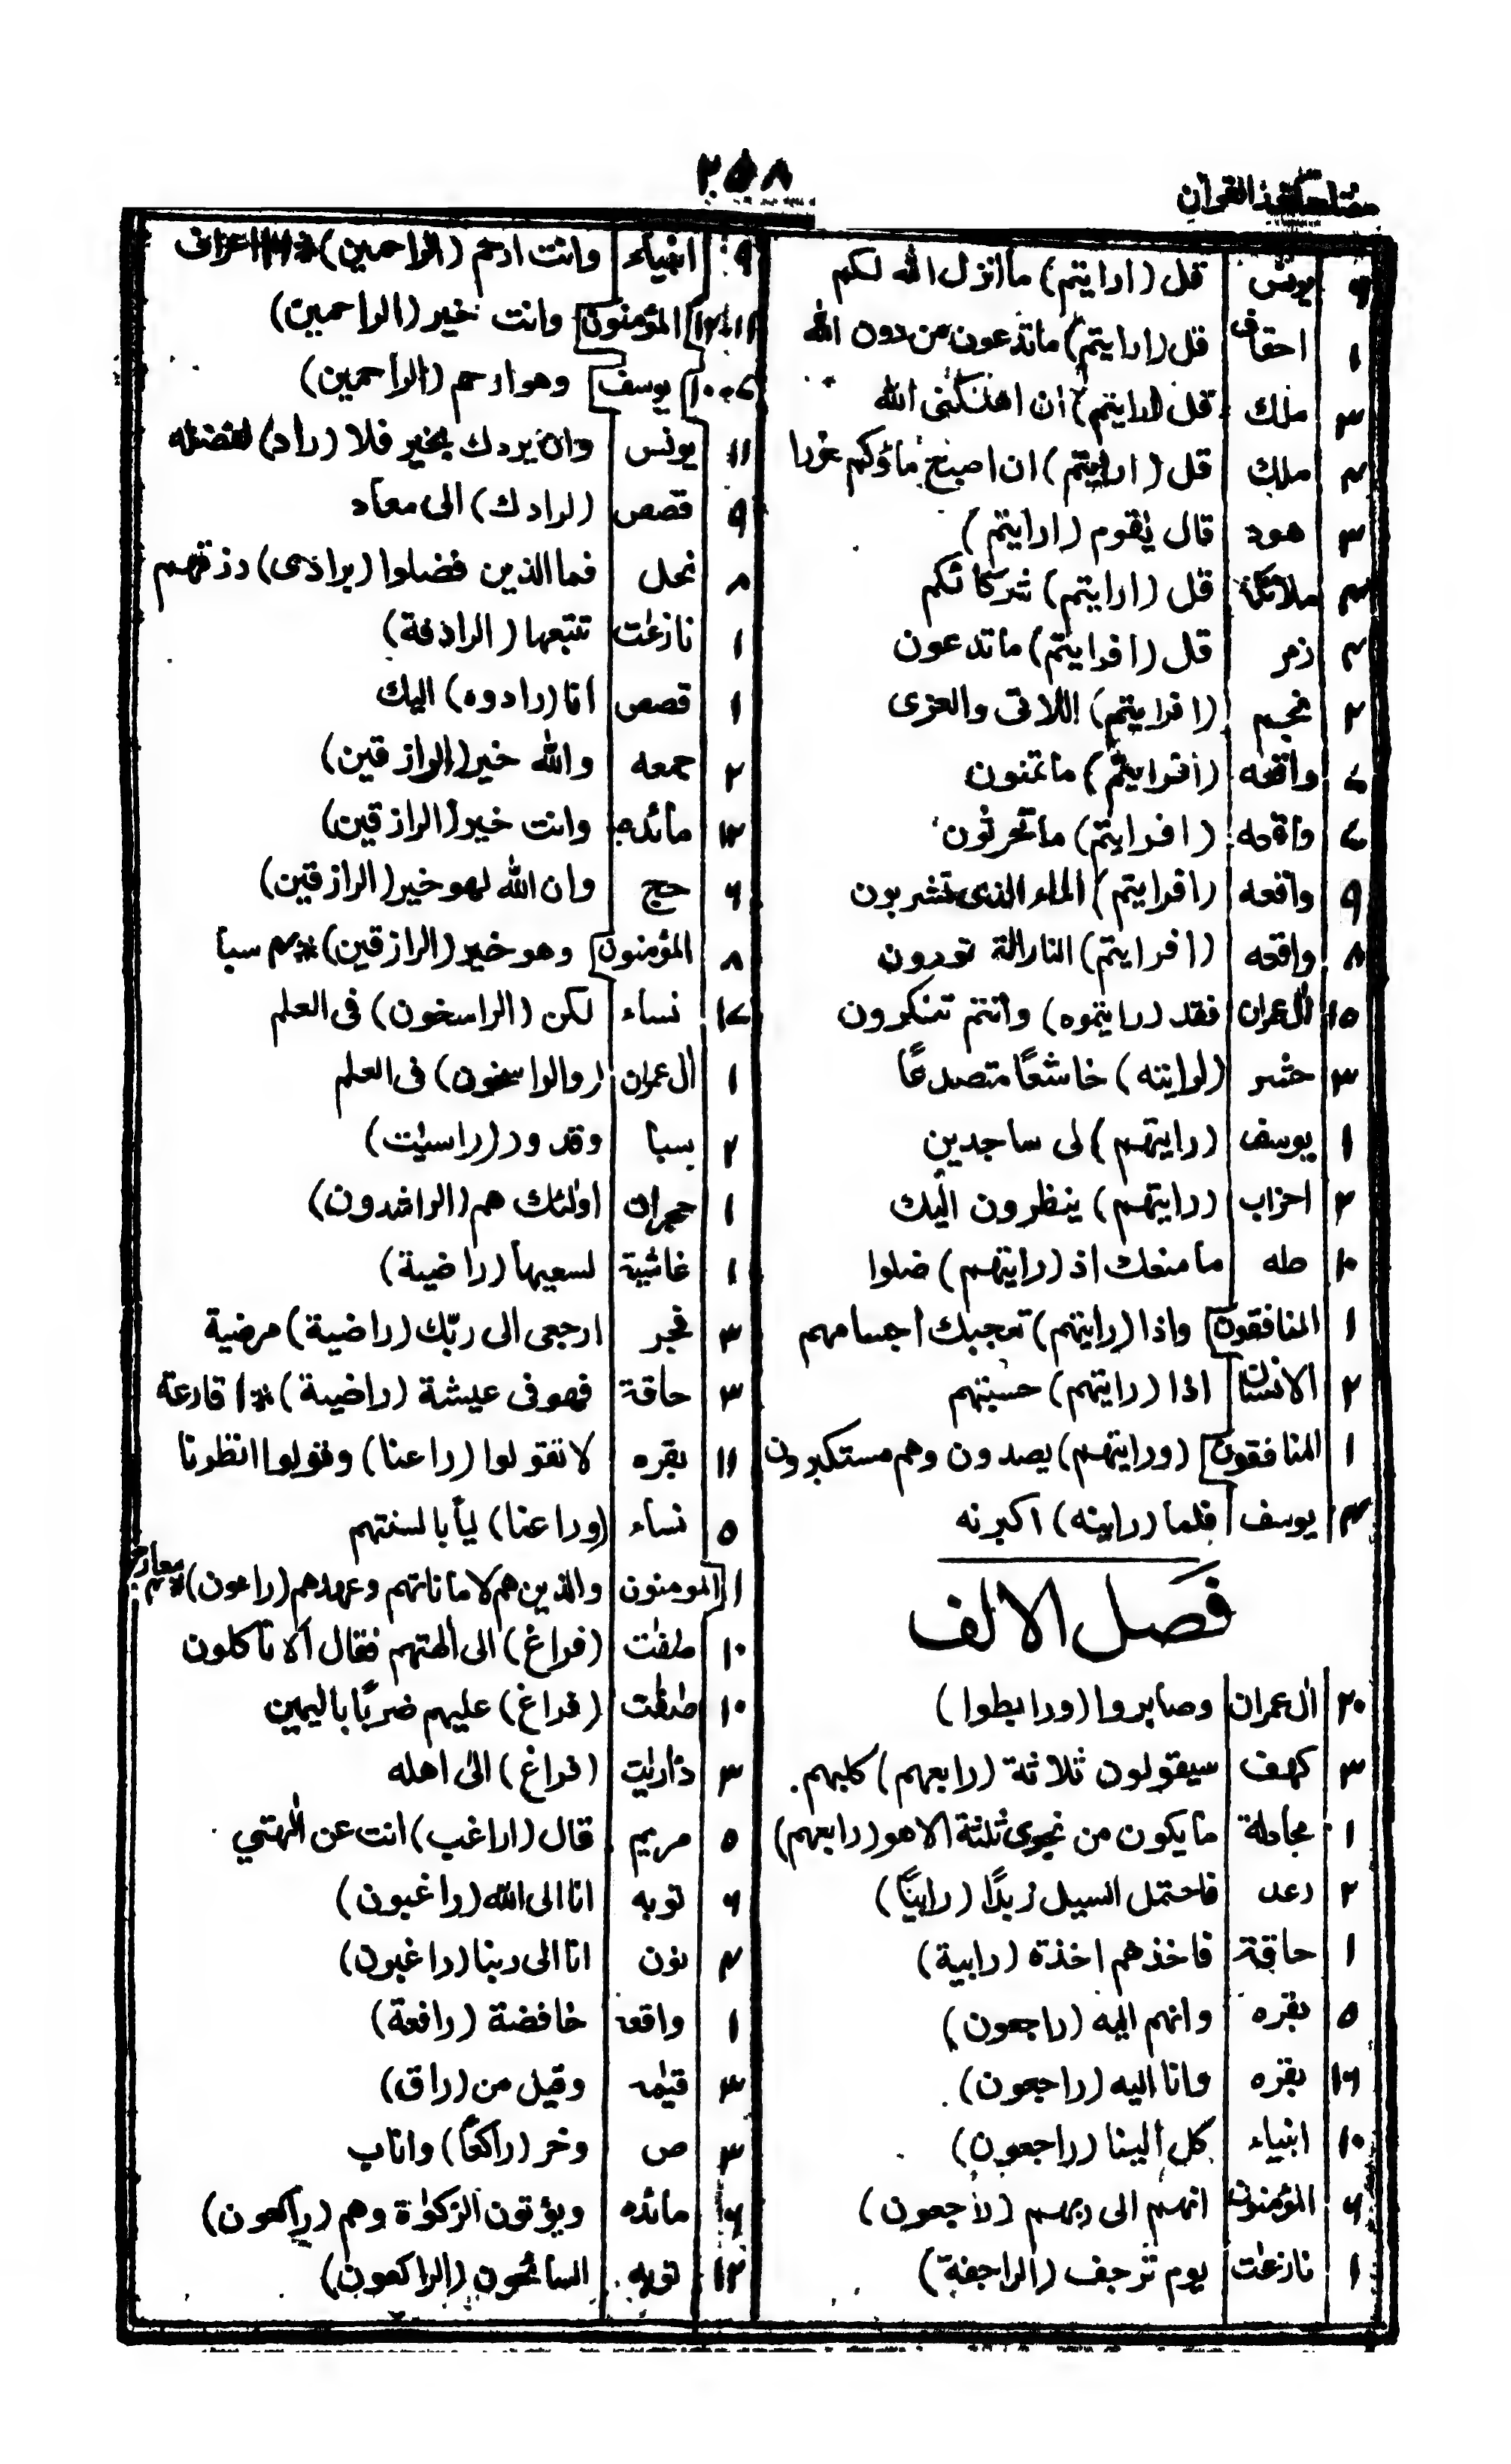 ٢٥٨
٦ يونس قل (ارايتم) ما انزل الله لكم
١ احقاف قل (ارايتم) ما تدعون من دون الله
٣ ملك قل (ارايتم) ان اهلكنى الله
٢ ملك قل (ارايتم) ان اصبح ماؤكم غورا
٣ هود قال يٰقوم (ارايتم)
٣ ملائكة قل (ارايتم) شركائكم
٣ زمر قل (افرايتم) ما تدعون
٢ نجم (افرايتم) اللاتى والعزى
٤ واقعه (افرايتم) ما تمنون
٤ واقعه (افرايتم) ما تحرثون
٩ واقعه (افرايتم) الماء الذى تشربون
٨ واقعه (افرايتم) النار التى تورون
١٥ آل عمران فقد (رايتموه) وانتم تنكرون
٣ حشر (لرايته) خاشعًا متصدعًا
١ يوسف (رايتهم) لى ساجدين
٢ احزاب (رايتهم) ينظرون اليك
١٠ طه ما منعك اذ (رايتهم) ضلوا
١ المنافقون واذا (رايتهم) تعجبك اجسامهم
٢ الانسان اذا (رايتهم) حسبتهم
١ المنافقون (ورايتهم) يصدون وهم مستكبرون
٣ يوسف فلما (راينه) اكبرنه
فصل الالف
٢٠ آل عمران وصابروا (ورابطوا)
٣ كهف سيقولون ثلاثة (رابعهم) كلبهم
١ مجادلة ما يكون من نجوى ثلثة الا هو (رابعهم)
٢ رعد فاحتمل السيل زبدًا (رابيًا)
١ حاقة فاخذهم اخذة (رابية)
٥ بقره وانهم اليه (راجعون)
١٦ بقره وانا اليه (راجعون)
١٠ انبياء كل الينا (راجعون)
٦ المؤمنون انهم الى ربهم (راجعون)
١ نازعٰت يوم ترجف (الراجفة)
٩ انبياء وانت ارحم (الراحمين) اعراف
المؤمنون وانت خير (الراحمين)
يوسف وهو ارحم (الراحمين)
١١ يونس وان يردك بخير فلا (راد) لفضله
٩ قصص (لرادك) الى معاد
٨ نحل فما الذين فضلوا (برادى) رزقهم
١ نازعٰت تتبعها (الرادفة)
١ قصص انا (رادوه) اليك
٢ جمعه والله خير (الرازقين)
١٢ مائده وانت خير (الرازقين)
٦ حج وان الله لهو خير (الرازقين)
٨ المؤمنون وهو خير (الرازقين) سبا
١٤ نساء لكن (الراسخون) فى العلم
١ آل عمران (والراسخون) فى العلم
٢ سبا وقدور (راسيٰت)
١ حجرات اولئك هم (الراشدون)
١ غاشية لسعيها (راضية)
٣ فجر ارجعى الى ربّك (راضية) مرضية
٣ حاقة فهو فى عيشة (راضية) ١ قارعة
١١ بقره لا تقولوا (راعنا) وقولوا انظرنا
٥ نساء (وراعنا) ليًا بالسنتهم
١ المومنون والذين هم لاماناتهم وعهدهم (راعون) معارج
١٠ صٰفٰت (فراغ) الى الهتهم فقال الا تاكلون
١٠ صٰفٰت (فراغ) عليهم ضربًا باليمين
٣ ذٰاريٰت (فراغ) الى اهله
٥ مريم قال (اراغب) انت عن الهتي
٦ توبه انا الى الله (راغبون)
٢ نون انا الى ربنا (راغبون)
١ واقعه خافضة (رافعة)
٣ قيٰمه وقيل من (راق)
٣ ص وخر (راكعًا) واناب
٦ مائده ويؤتون الزكوٰة وهم (راكعون)
١٢ توبه السائحون (الراكعون)